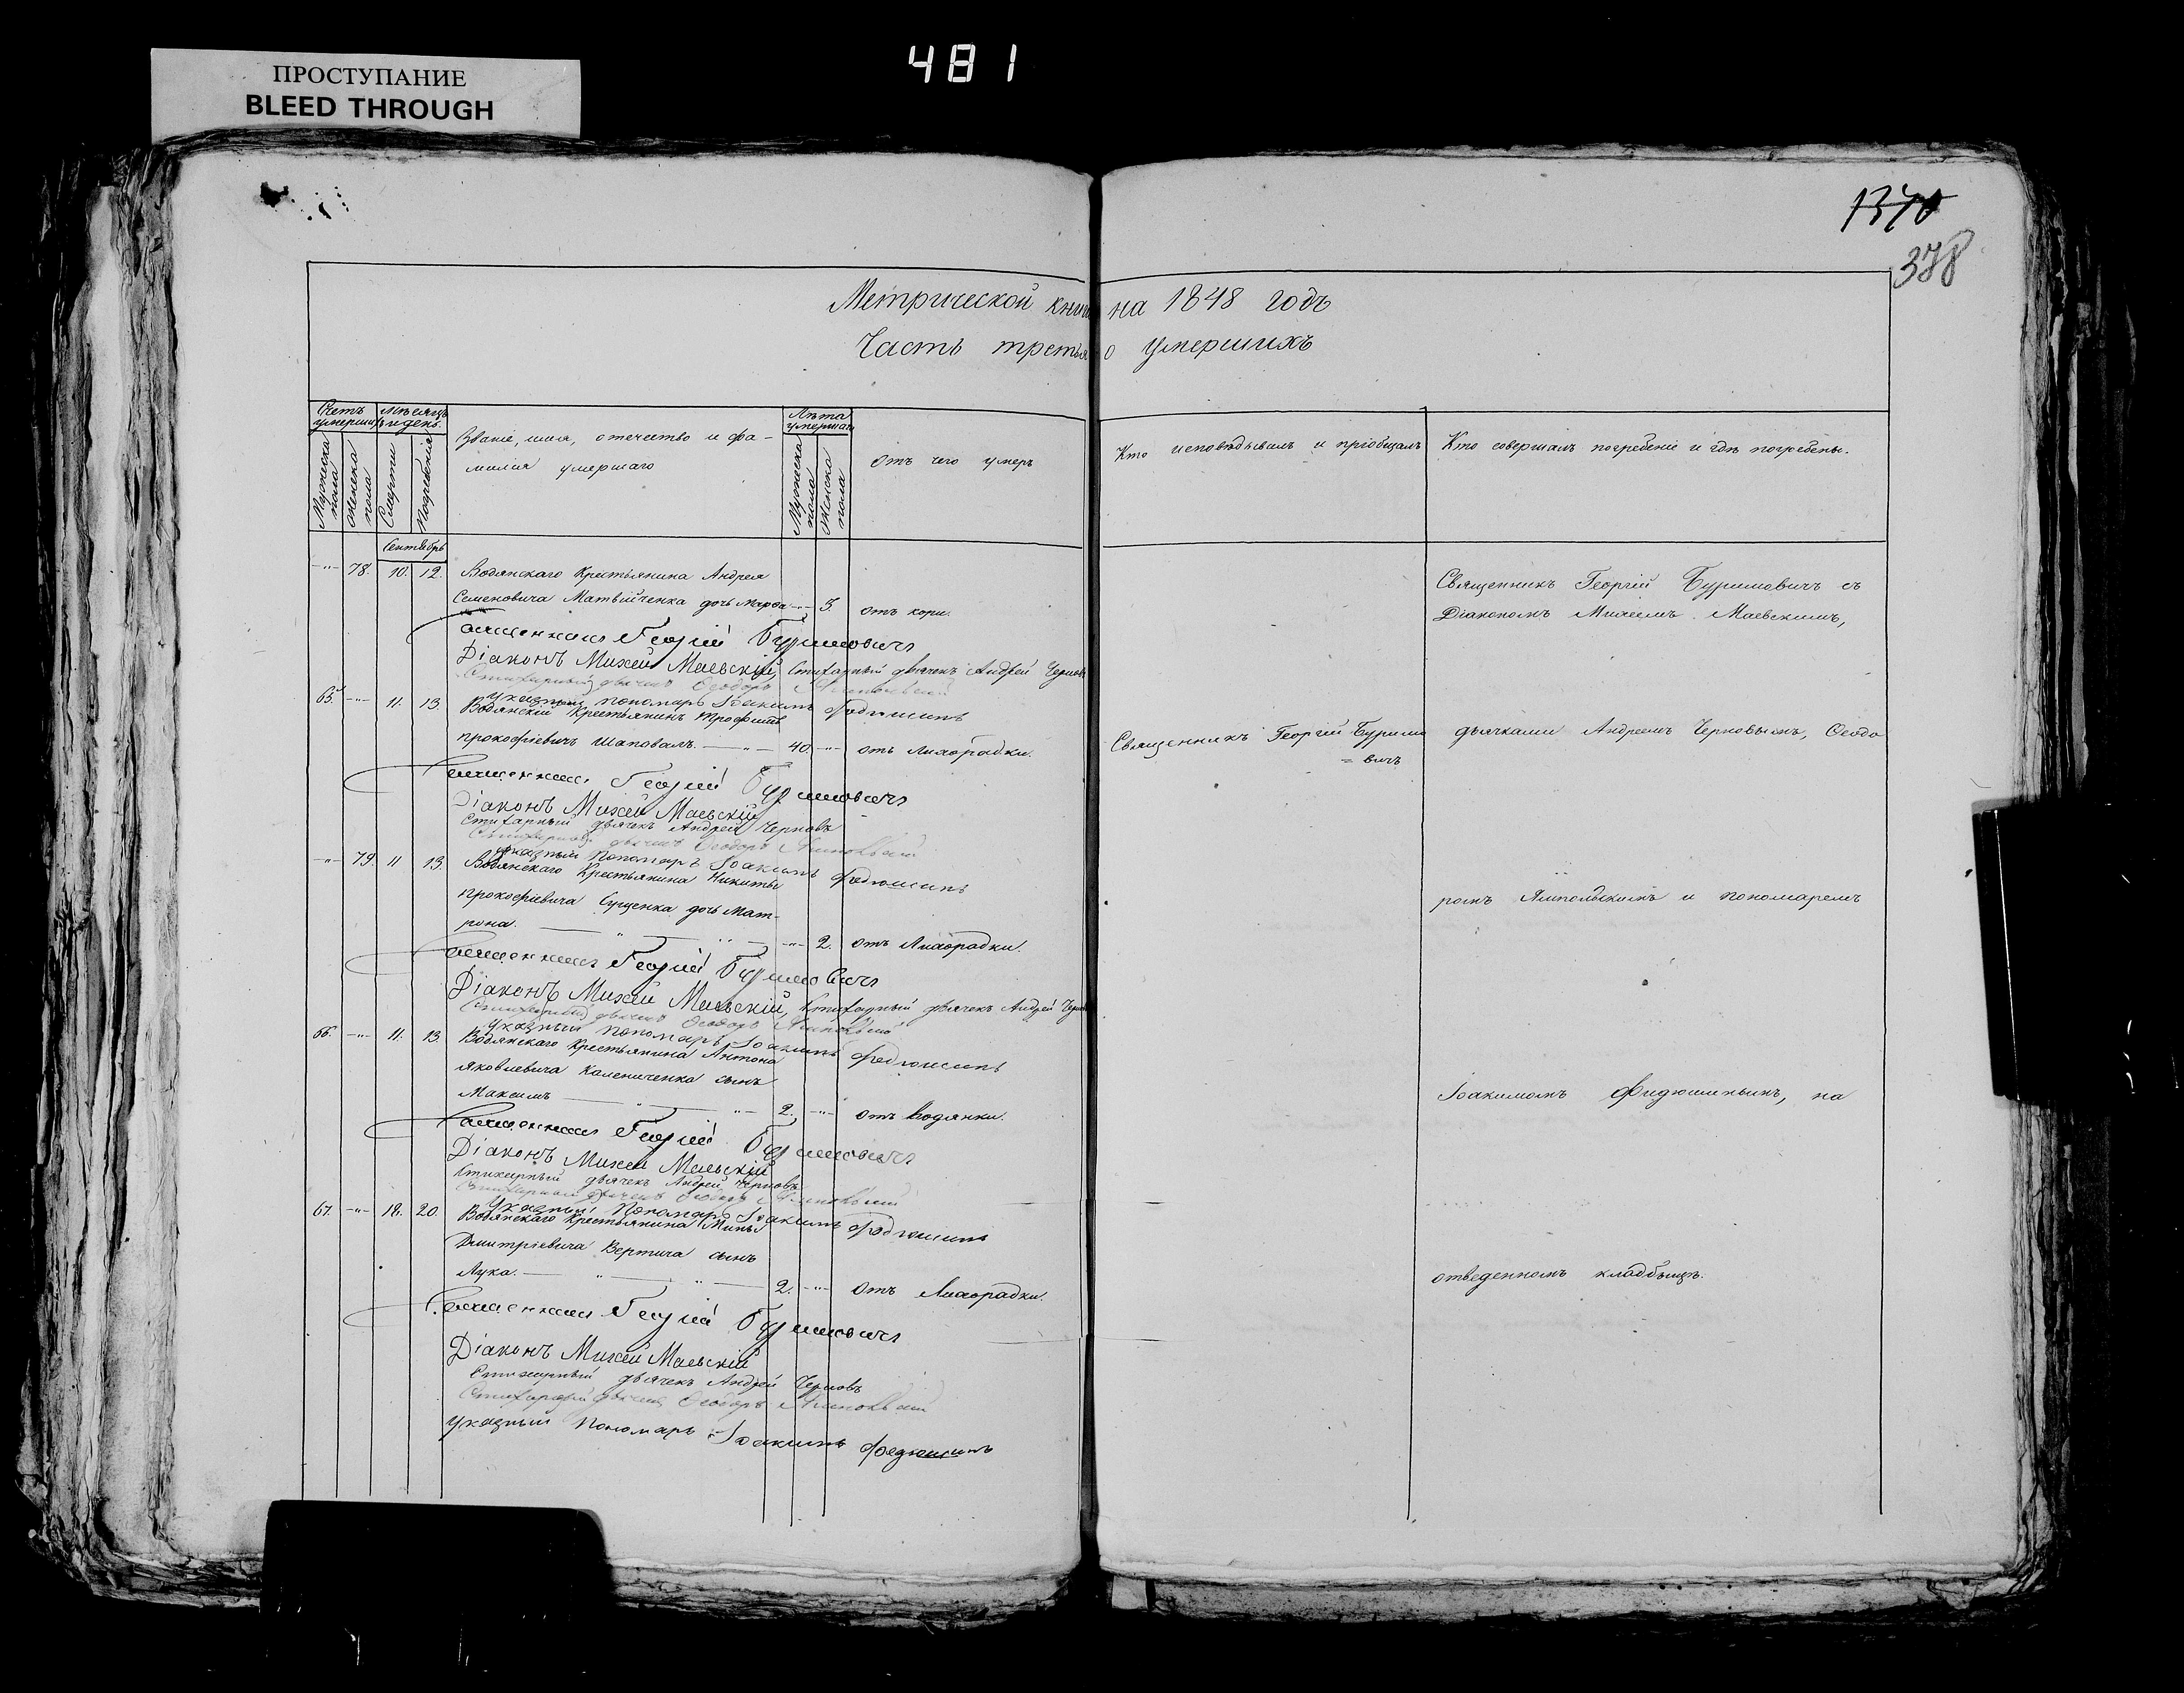 481
ПРОСТУПАНИЕ
BLEED THROUGH
1370
378
Метрической книги на 1848 годъ
Часть третья о умершихъ
Счетъ умершихъ
Мужеска пола
Женска пола
Мѣсяцъ и день
Смерти
Погребенія
Званіе, имя, отечество и фа-
милія умершаго
Лѣта умершаго
Мужеска пола
Женска пола
Отъ чего умеръ
Кто исповѣдывалъ и пріобщалъ
Кто совершалъ погребеніе и гдѣ погребены.
Сентябрь
-"- 78. 10. 12. Водянскаго Крестьянина Андрея
Семеновича Матвійченка дочь Марфа -"- 3. отъ кори.
Священникъ Георгій Буримовичъ
Діаконъ Михей Маевскій, Стихарный дьячекъ Андрей Черновъ
Стихарный дьячекъ Ѳеодоръ Ямпольскій
Указный пономарь Іоакимъ Федюшинъ
65. -"- 11. 13. Водянскій Крестьянинъ Трофимъ
Прокофіевичъ Шаповалъ. 40. -"- отъ Лихорадки.
Священникъ Георгій Буримовичъ
Діаконъ Михей Маевскій
Стихарный дьячекъ Андрей Черновъ
Стихарный дьячекъ Ѳеодоръ Ямпольскій
Указный Пономарь Іоакимъ Федюшинъ
-"- 79. 11 13. Водянскаго Крестьянина Никиты
Прокофіевича Сущенка дочь Мат-
рона. -"- 2. отъ Лихорадки.
Священникъ Георгій Буримовичъ
Діаконъ Михей Маевскій, Стихарный дьячекъ Андрей Черновъ
Стихарный дьячекъ Ѳеодоръ Ямпольскій
Указный Пономарь Іоакимъ Федюшинъ
66. -"- 11. 13. Водянскаго Крестьянина Антона
Яковлевича Калениченка сынъ
Максимъ 2. -"- отъ водянки.
Священникъ Георгій Буримовичъ
Діаконъ Михей Маевскій
Стихарный дьячекъ Андрей Черновъ
Стихарный дьячекъ Ѳеодоръ Ямпольскій
Указный Пономарь Іоакимъ Федюшинъ
67. -"- 18. 20. Водянскаго Крестьянина Мины
Дмитріевича Вертича сынъ
Лука. 2. -"- Отъ Лихорадки.
Священникъ Георгій Буримовичъ
Діаконъ Михей Маевскій
Стихарный дьячекъ Андрей Черновъ
Стихарный дьячекъ Ѳеодоръ Ямпольскій
Указный Пономарь Іоакимъ Федюшинъ
Священникъ Георгій Буримо
= вичъ
Священникъ Георгій Буримовичъ съ
Діакономъ Михеемъ Маевскимъ,
дьячками Андреемъ Черновымъ, Ѳеодо
ромъ Ямпольскимъ и пономаремъ
Іоакимомъ Фидюшинымъ, на
отведенномъ кладбищѣ.